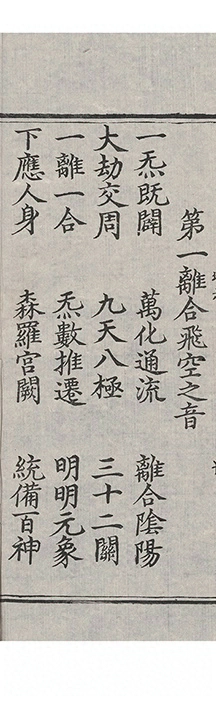 第一離合飛空之音
一炁既闢　萬化通流　離合陰陽
大劫交周　九天八極　三十二關
一離一合　炁數推遷　明明元象
下應人身　森羅宮闕　統備百神